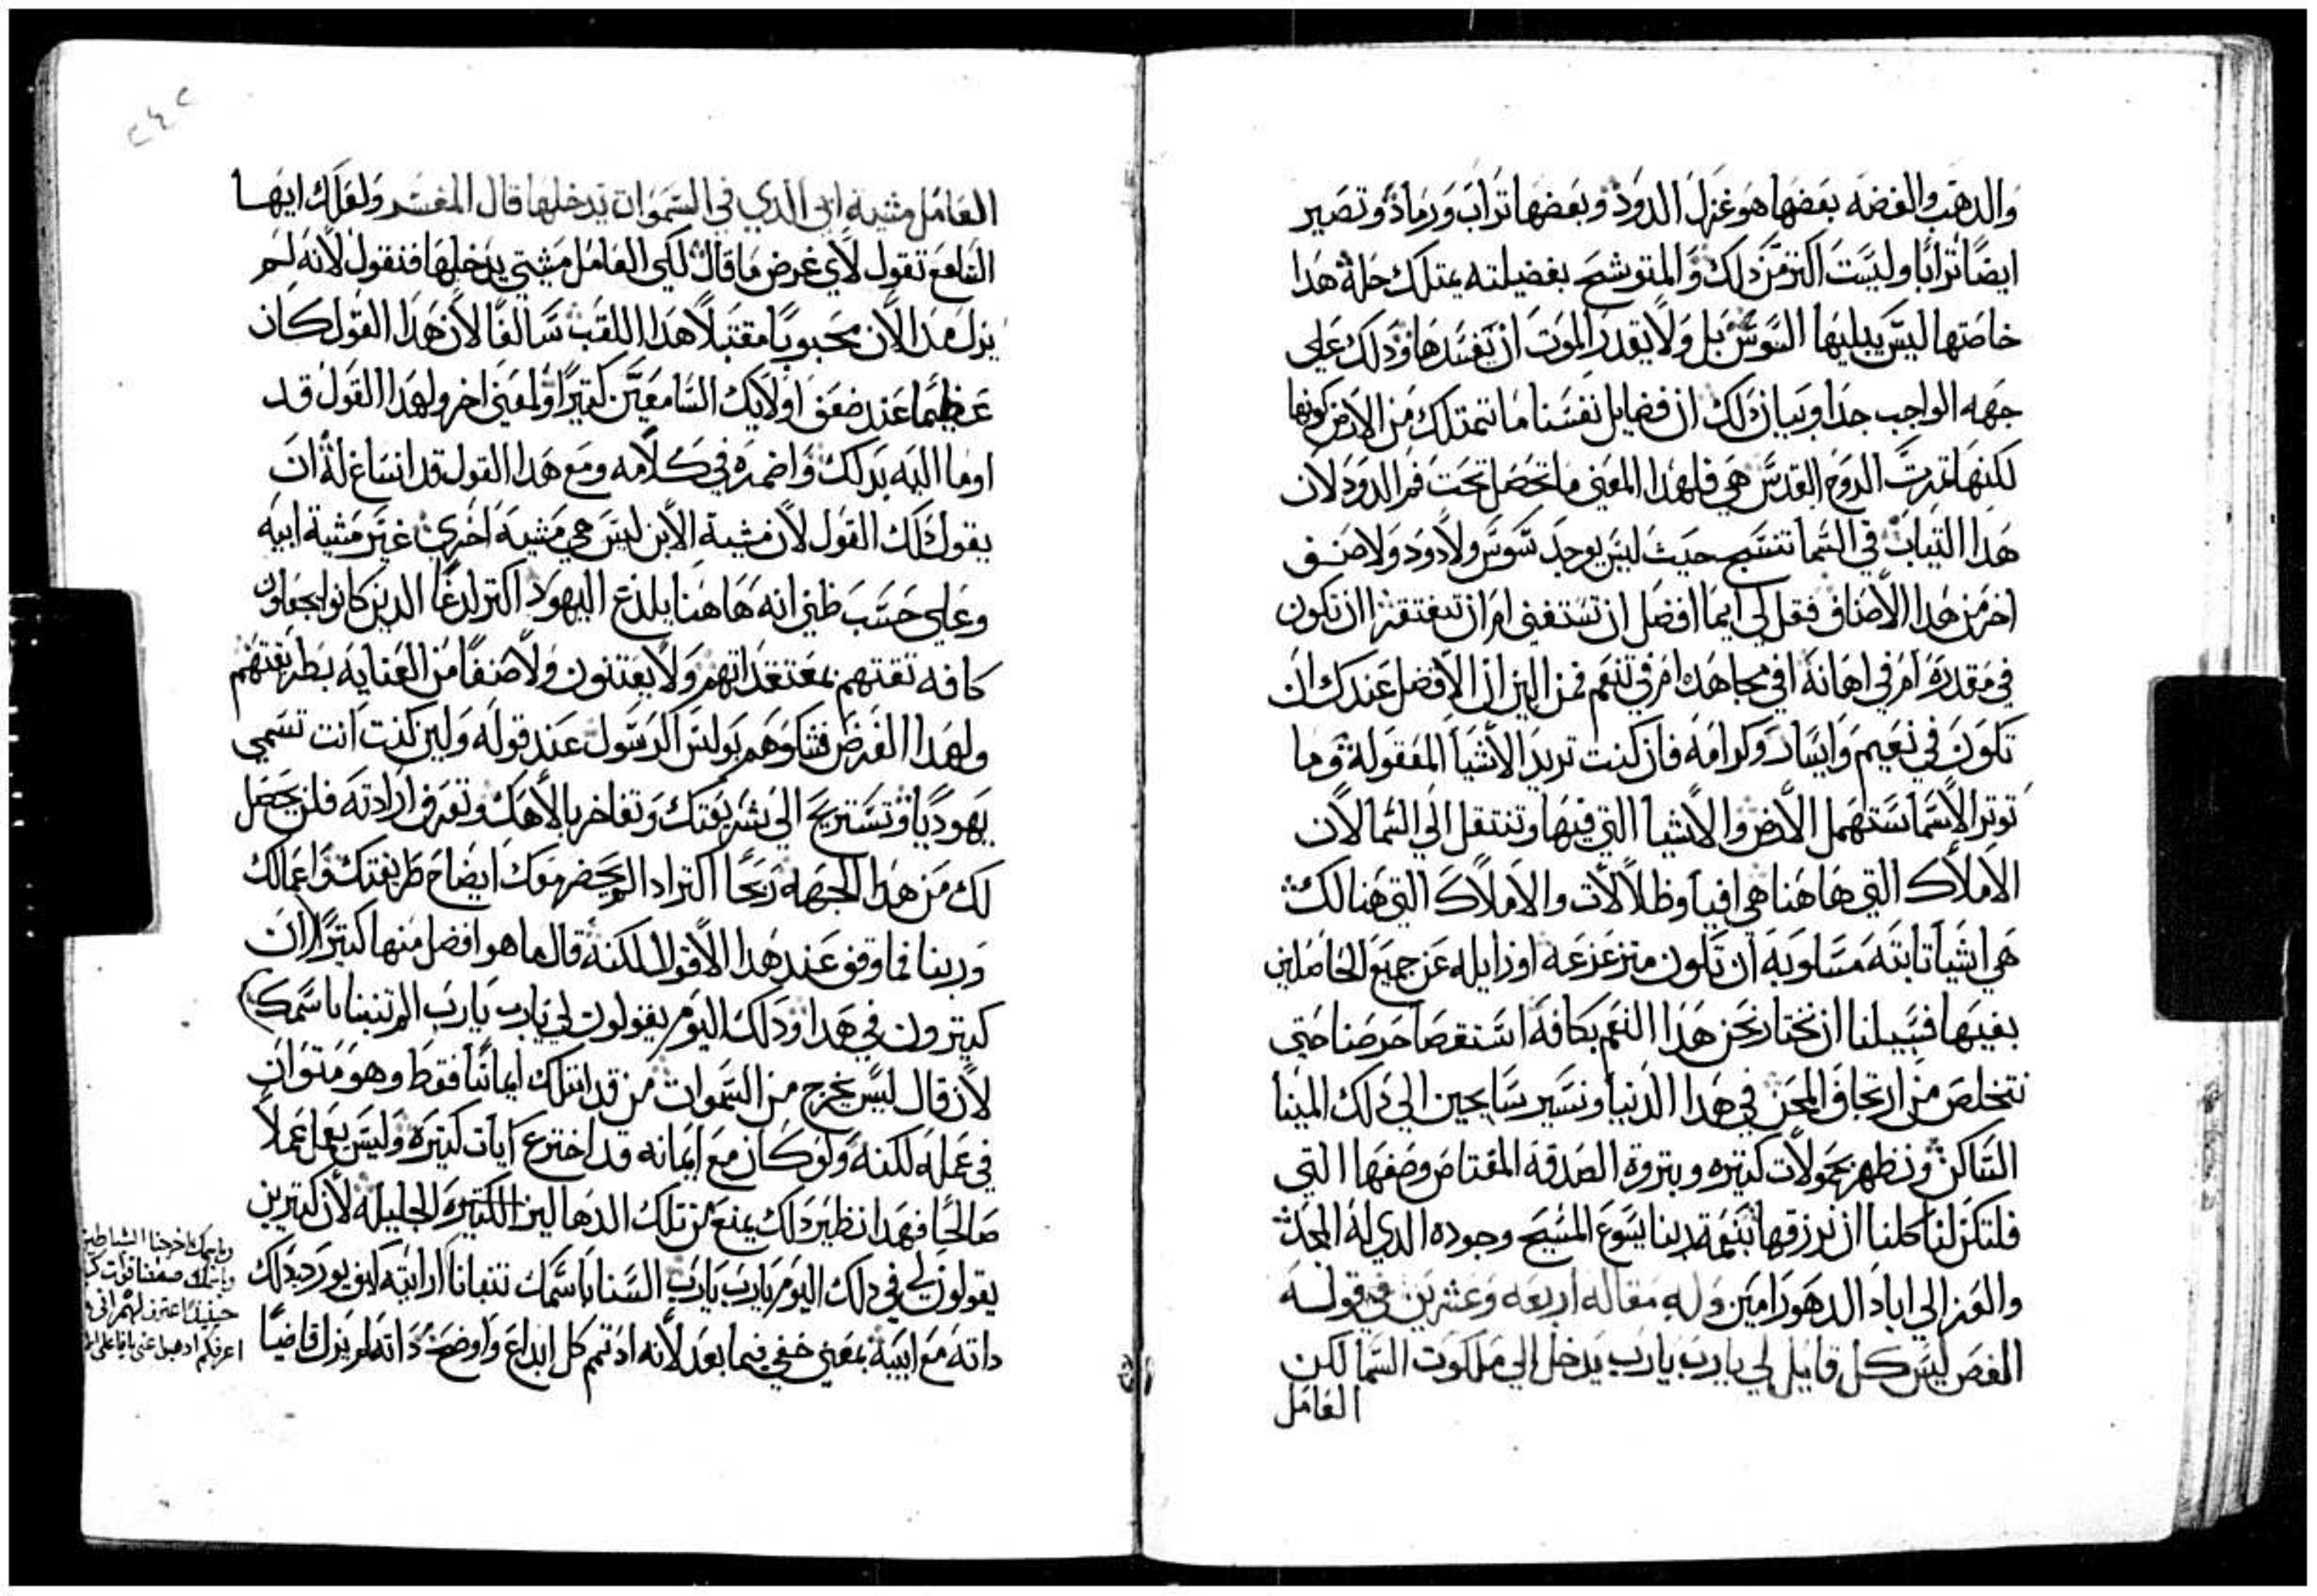 والدهب والفضه بعضها هو غزل الدود وبعضها تراب ورماد وتصير
ايضًا ترابًا وليست اكتر من دلك والمتوشح بفضيلته يمتلك حلة هدا
خاصتها ليس يبليها السوس بل ولا يقدر الموت ان يفسدها ودلك على
جهه الواجب جدا وبيان دلك ان فضايل نفسنا ما تتمتلك من الارض كونها
لكنها تمرت الروح القدس هي فلهدا المعنى ما تحصل تحت فم الدود لان
هدا التياب في السما تنتسج حيت ليس يوجد سوس ولا دود ولا صنف
اخر من هدا الاصناف فقل لي ايما افضل ان تستغني ام ان تفتقر ان تكون
في مقدرة ام في اهانة افي مجاهدة ام في تنعم فمن البين ان الافضل عندك ان
تكون في نعيم وايسار وكرامه فان كنت تريد الاشيا المعقولة وما
توتر الاسما ستهمل الارض والاشيا التي فيها وتنتقل الى السما لان
الاملاك التي هاهنا هي افيا وظلالات والاملاك التي هنالك
هي اشيا تابته مساوبه ان تكون متزعزعه او زايله عن جميع الحاصلين
بفيها فسبيلنا ان نختار نحن هدا النعم بكافة استقصا حرصنا حتى
نتخلص من ارتجاف المحن في هدا الدنيا ونسير سايحين الى دلك المينا
الساكن ونظهر بحمولات كتيره وبتروة الصدقه المعتاص وصفها التي
فلتكن لنا كلنا ان نرزقها بنعمة ربنا يسوع المسيح وجوده الدي له المجد
والعز الى اباد الدهور امين وله مقاله اربعه وعشرين في قوله
الفص ليس كل قايل لي يا رب يا رب يدخل الى ملكوت السما لكن
العامل
العامل مشية ابي الدي في السموات يدخلها قال المفسر ولعلك ايها
السامع تقول لاي غرض ما قال لكي العامل مشتي يدخلها فنقول لانه لم
يزل هدا الان محبوبًا مقتبلًا هدا اللقب سالفًا لان هدا القول كان
عظيمًا عند ضعف اولايك السامعين كتيرًا ولمعنى اخر ولهدا القول قد
اوما اليه بدلك واضمره في كلامه ومع هدا القول قد انساغ له ان
يقول دلك القول لان مشية الابن ليس هي مشيه اخرى غير مشية ابيه
وعلى حسب ظني انه هاهنا يلدع اليهود اكتر لدعًا الدين كانوا يجعلون
كافه تقتهم بمعتقداتهم ولا يعتنون ولا صنفًا من العنايه بطريقتهم
ولهدا الغرض فشاوهم بولس الرسول عند قوله ولين كنت انت تسمى
يهوديًا وتستريح الى شريعتك وتفاخر بالاهك وتعرف ارادته فلن يحصل
لك من هدا الجهه ربحًا اكتر ادا لم يحضر معك ايضاح طريقتك واعمالك
وربنا فما وقف عند هدا الاقوال لكنه قال ما هو افضل منها كتيرًا ان
كتيرون في هدا ودلك اليوم يقولون لي يا رب يا رب الم تنبنا باسمك
لان قال ليس يخرج من السموات من قد امتلك ايمانًا فقط وهو متوان
في عمله لكنه ولو كان مع ايمانه قد اخترع ايات كتيره وليس يعمل عملًا
صالحًا فهدا نظير دلك يمنع من تلك الدهاليز الكتيرة الجليله لان كتيرين
يقولون لي في دلك اليوم يا رب يا رب السنا باسمك تنبانا ارايته كيف يورد ديدلك
داته مع ابيه بمعنى خفي فيما بعد لانه اد تمم كل ابداع واوضح داته لم يزل قاضيًا
وباسمك اخرجنا الشياطين
وباسمك صنعنا قوات
حينيد اعترف لهم اني
اعرفكم ادهبوا عني يا فاعلي